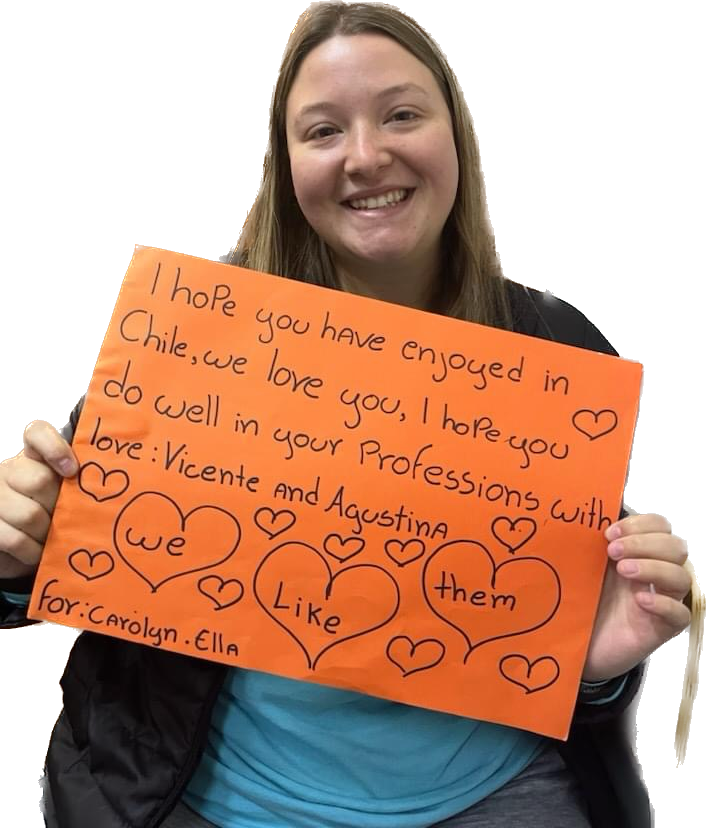 I hope you have enjoyed in
Chile, we love you, I hope you
do well in your Professions with
love: Vicente and Agustina
we
Like
them
For: Carolyn. Ella